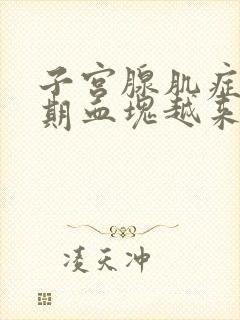 子宫腺肌症
期血块越来
凌天冲